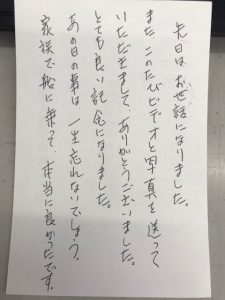 先日は、お世話になりました。
また このたびビデオと写真を送って
いただきまして、ありがとうございました。
とても良い記念になりました。
あの日の事は一生忘れないでしょう、
家族で船に乗って、本当に良かったです。